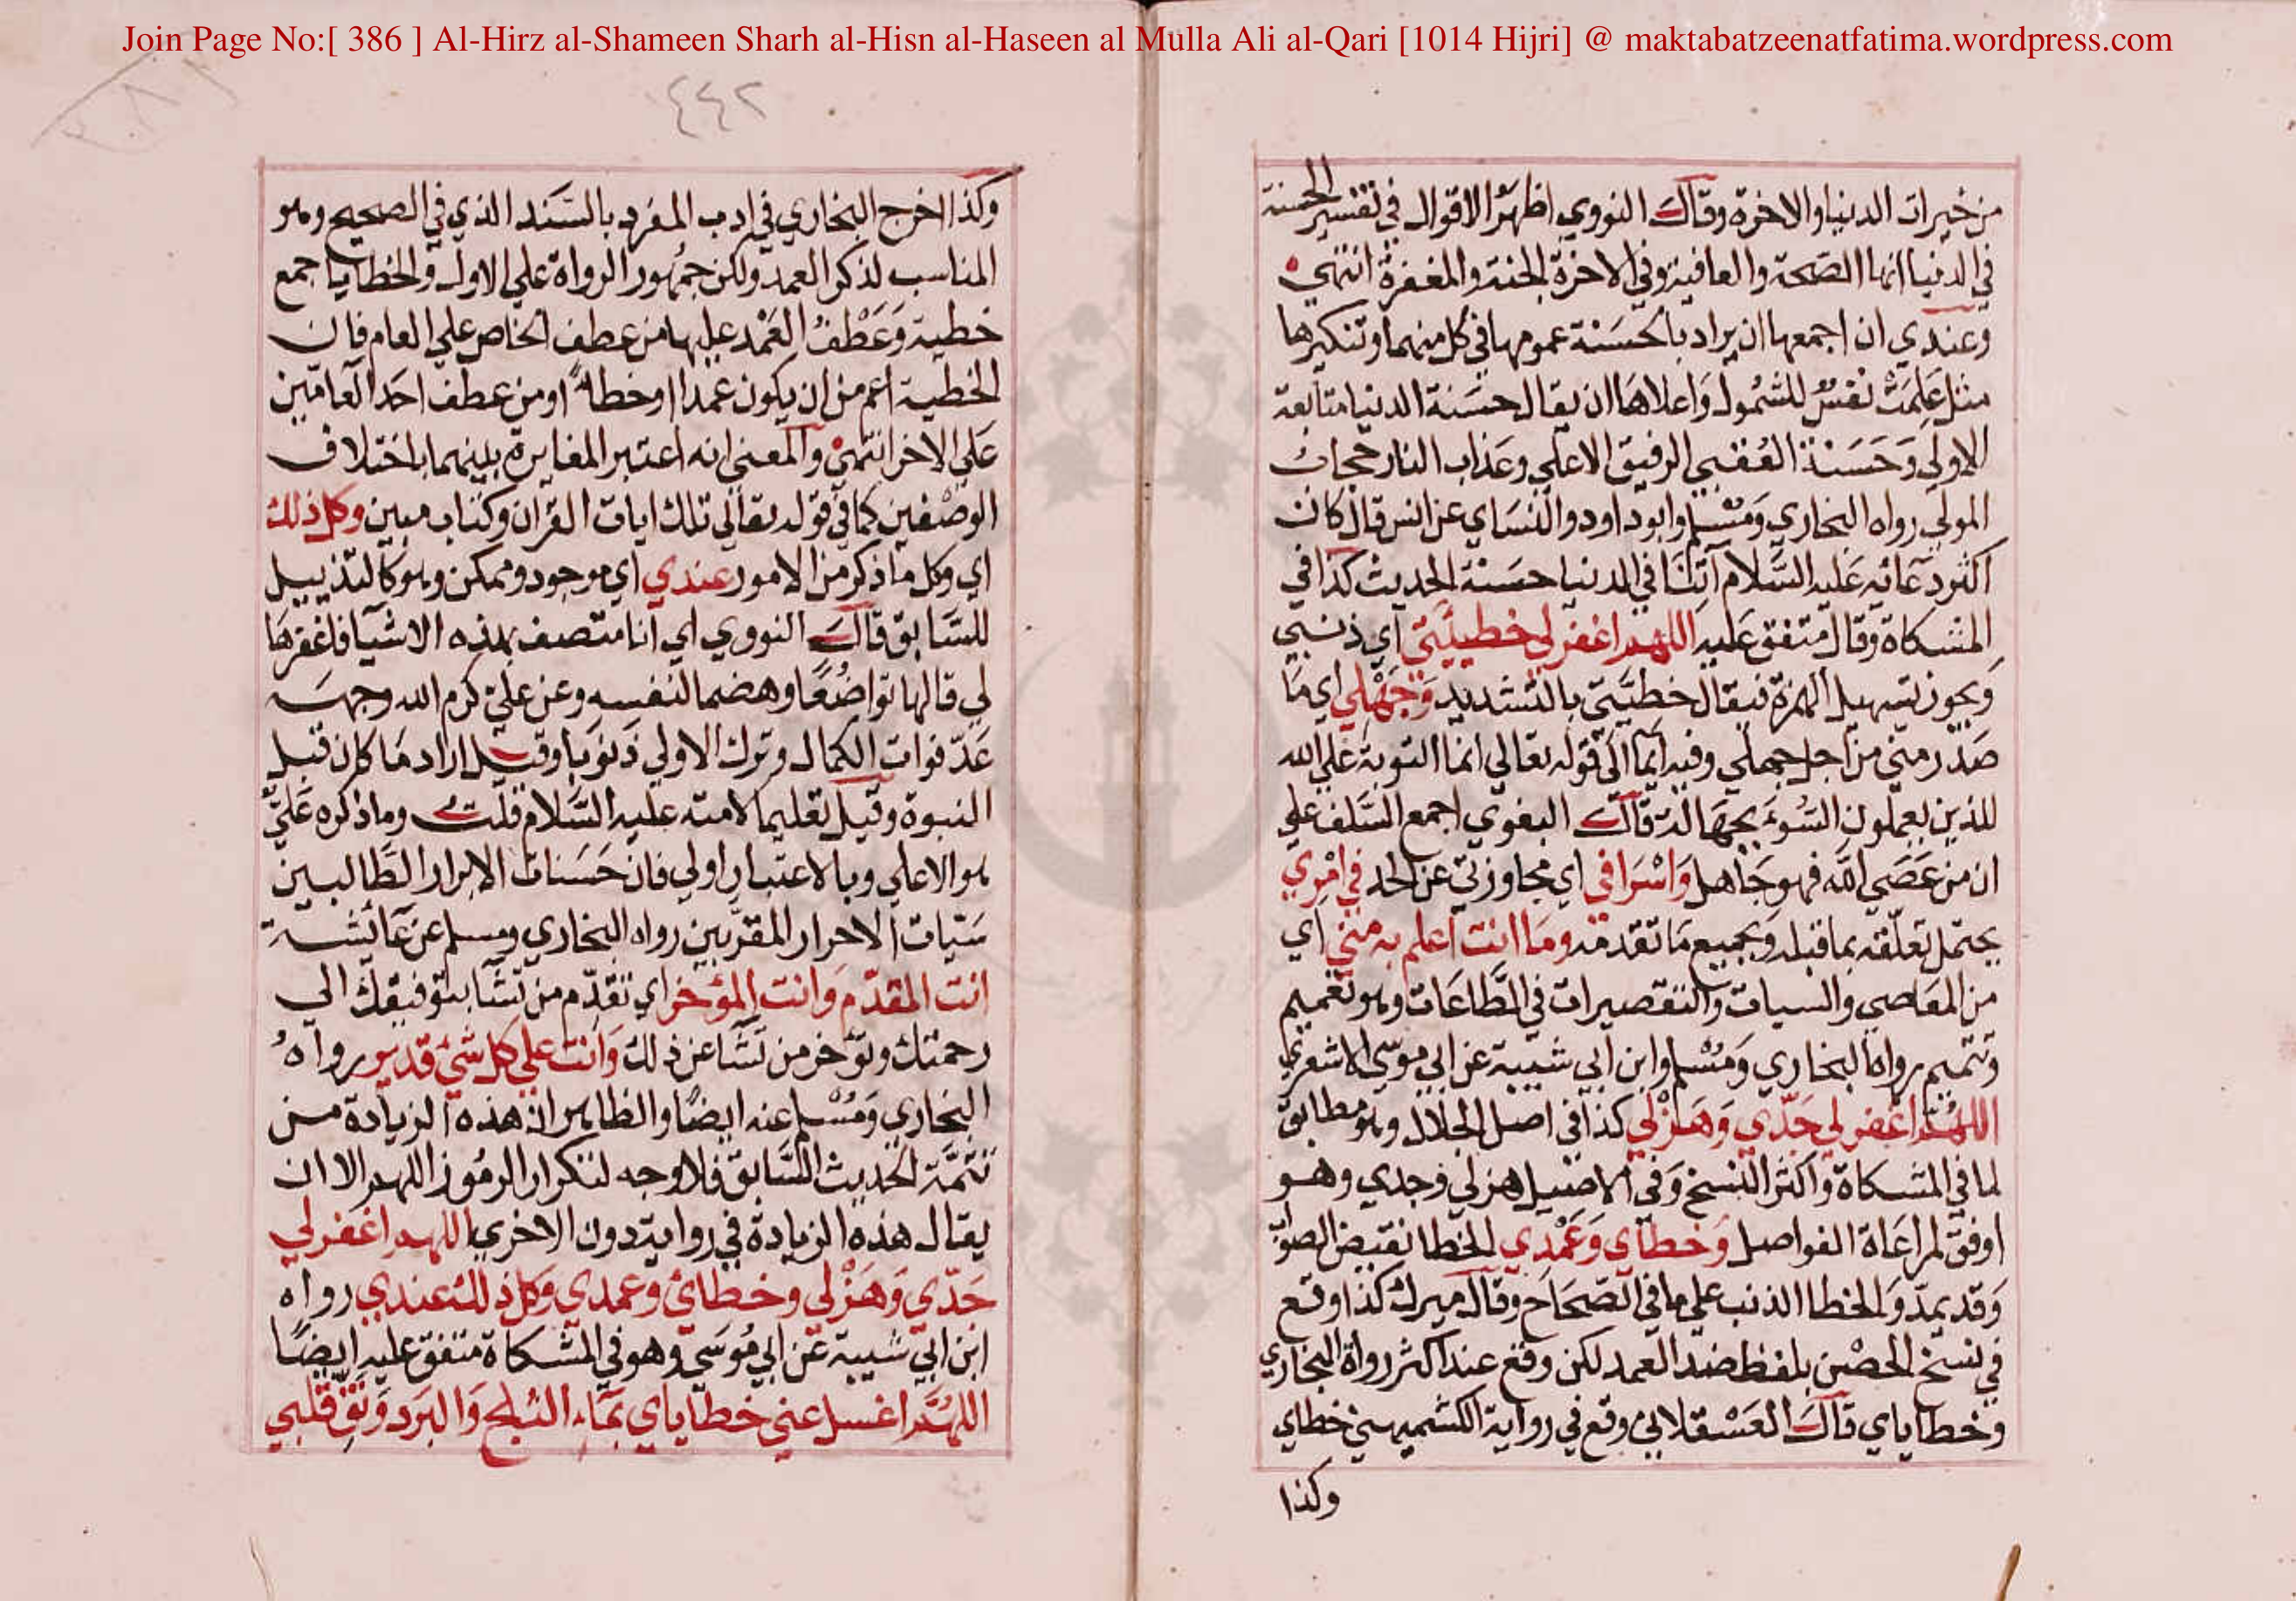 Join Page No:[ 386 ] Al-Hirz al-Shameen Sharh al-Hisn al-Haseen al Mulla Ali al-Qari [1014 Hijri] @ maktabatzeenatfatima.wordpress.com
٤٤٢
من خيرات الدنيا والاخرة وقال النووي اظهر الاقوال في تفسير الحسنة
في الدنيا انها الصحة والعافية وفي الاخرة الجنة والمغفرة انتهى
وعندي ان اجمعها ان يراد بالحسنة عمومها في كل منهما وتنكيرها
مثل عَلِمَتْ نفسٌ للشمول وَاعلاهَا ان يقال حسَنة الدنيا متابعة
الاولى وَحَسَنة العُقبى الرفيق الاعلى وعَذاب النار حجاب
المولى رواه البخاري وَمُسْلم وابو داود والنَسَاي عن انس قال كان
اكثر دعَائه عَليه السَّلام آتِنَا في الدنيا حسَنة الحديث كذا في
المشكاة وقال متفق عَليه اللهم اغفر لي خطيئتي اي ذنبي
وَيجوز تسهيل الهمزة فيقال خطيَّتي بالتشديد وَجَهْلِي اي مَا
صَدَر مني من اجل جهلي وفيه ايماَ الى قوله تعالى انما التوبة عَلى الله
للذين يعملون السُوءَ بجهَالة قال البغوي اجمع السَّلف على
ان من عَصَى الله فهو جَاهل وَاسْرَافي اي مجاوزتي عن الحد في امْرِي
يحتمل تعلّقه بما قبله وَبجميع مَا تقدمه ومَا انت اعلم به مني اي
من المعَاصي والسيات والتقصيرات في الطَّاعَات وهو تعميم
وتتميم رواه البخاري وَمُسْلم وابن ابي شيبة عن ابي موسَى الاشعري
اللهُمَّ اغفر لي جَدّي وَهَزْلي كذا في اصل الجلال وهو مطابق
لما في المشكاة وَاكثر النسخ وَفي الاصَيل هزلي وجدي وهو
اوفق لمراعَاة الفواصل وَخطَاي وَعَمْدِي الخطا نقيض الصواب
وَقد يمدّ وَالخطا الذنب على ما في الصّحَاح وقال ميرك كذا وقع
في نسخ الحصْن بلفظ ضد العمد لكن وقع عند اكثر رواة البخاري
وخطاياي قال العَسْقلاني وقع في رواية الكشميهني خطاي
وكذا
وكذا اخرج البخاري في ادب المفرد بالسَّند الذي في الصحيح وهو
المناسب لذكر العمد ولكن جمهور الرواة على الاول والخطايا جمع
خطية وَعَطْفُ العَمْد عليها من عطف الخاص على العام فان
الخطية اعم من ان يكون عمدا او خطاً او من عطف احَد العَامّين
عَلى الاخر انتهى والمعنى انه اعتبر المغايرة بينهما باختلاف
الوصْفين كما في قوله تعالى تلك ايات القران وكتاب مبين وكل ذلك
اي وكل ما ذكر من الامور عندي اي موجود وممكن وهو كالتذييل
للسَّابق قال النووي اي انا متصف بهذه الاشيا فاغفرهَا
لي قالها تواضُعًا وهضما لنفسه وعن عليّ كرم الله وجهه
عَدّ فوات الكمال وترك الاولى ذنوبًا وقيل اراد مَا كان قبل
النبوة وقيل تعليما لامته عليه السَّلام قلت وما ذكره عَليّ
هو الاعلى وبالاعتبار اولى فان حَسَنات الابرار الطَّالبين
سَيّات الاحرار المقرّبين رواه البخاري ومسلم عن عَائشة
انت المقدّم وَانت المؤخر اي تقدّم من تشَا بتوفيقك الى
رحمتك وتؤخر من تشَا عن ذلك وَانت على كل شي قدير رواهُ
البخاري وَمُسْلم عنه ايضًا والظاهر ان هذه الزيادة من
تتمَّة الحديث السَّابق فلا وجه لتكرار الرمُوز اللهم الا ان
يقال هذه الزيادة في رواية دون الاخرى اللهم اغفر لي
جَدّي وَهَزْلي وخطائ وعمدي وَكل ذلك عندي رواه
ابن ابي شيبة عن ابي مُوسَى وهو في المشكاة متفق عليه ايضًا
اللهُمَّ اغسل عني خطاَياي بمَاء الثلج وَالبرَد وَنَقِّ قَلبي